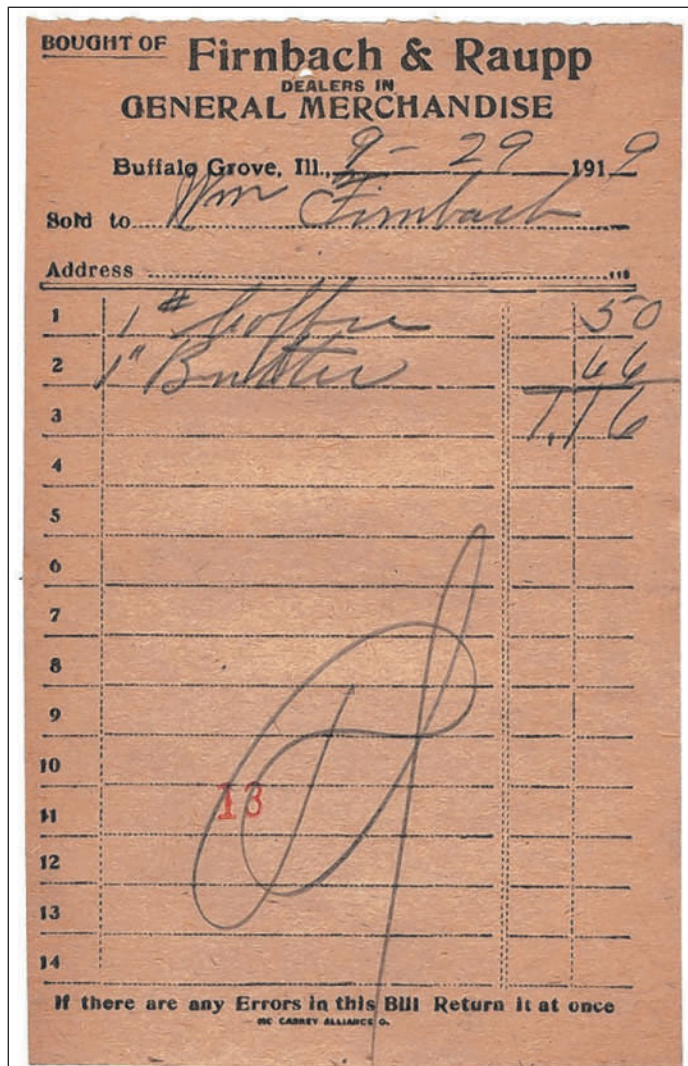 BOUGHT OF Firnbach & Raupp
DEALERS IN
GENERAL MERCHANDISE
Buffalo Grove, Ill., 9-29 1919
Sold to Wm Firnbach
Address
1 1# Coffee 50
2 1" Butter 66
3 1.16
4
5
6
7
8
9
10
13
11
12
13
14
If there are any Errors in this Bill Return it at once